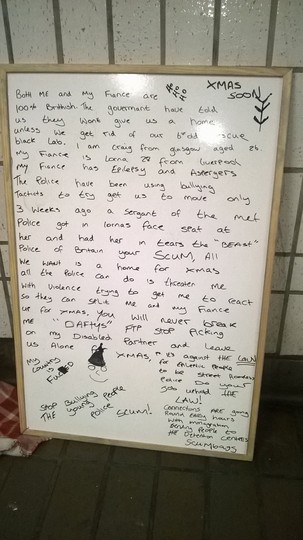 XMAS
SOON
Both ME and My Fiance are
100% Brittish. The goverment have told
us they wont give us a home
unless we get rid of our Rescue
black Lab. I am Craig from glasgow aged 26.
My Fiance is Lorna 28 from Liverpool
My Fiance has Epilepsy and Aspergers
The Police have been using bullying
Tacticts to try get us to move only
3 weeks ago a Sergant of the met
Police got in lornas face spat at
her and had her in tears the "BEAST"
Police of Britain your SCUM, All
We want is a home for xmas
all the Police can do is threaten me
with violence trying to get me to react
so they can split me and my Fiance
up for XMAS, You will never break
me "DAFTys" FTP stop Picking
on my Disabled Partner and leave
us Alone XMAS,
My
country
is
Stop Bullying People
THE young Police Scum!
it's against the LAW
for epileptic People
to be street homeless
Police Do your
job uphold THE
LAW!
connections ARE going
Round Early hours
with immigration
People to
the Detention centres
Scumbags